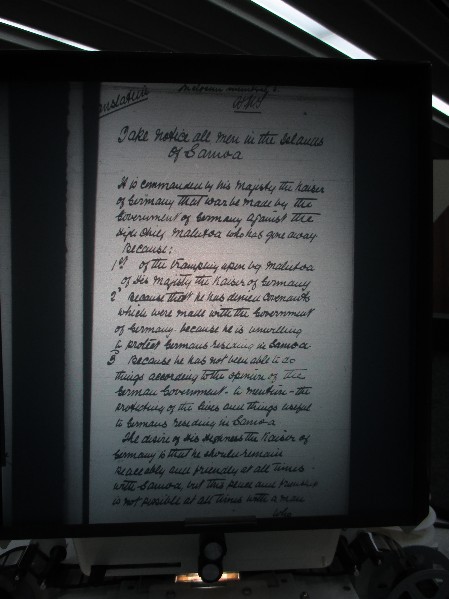 Translation
Take notice all men in the Islands
of Samoa
It is commanded by his Majesty the Kaiser
of Germany that war be made by the
Government of Germany against the
High Chief Malietoa who has gone away
Because:
1st of the trampling upon by Malietoa
of His Majesty the Kaiser of Germany
2° Because that he has denied Covenants
which were made with the Government
of Germany because he is unwilling
to protect Germans residing in Samoa
3 Because he has not been able to do
things according to the opinion of the
German Government - to mention - the
protecting of the lives and things useful
to Germans residing in Samoa
The desire of His Highness the Kaiser of
Germany is that he should remain
peaceably and friendly at all times
with Samoa, but this peace and
is not possible at all times with a man
who